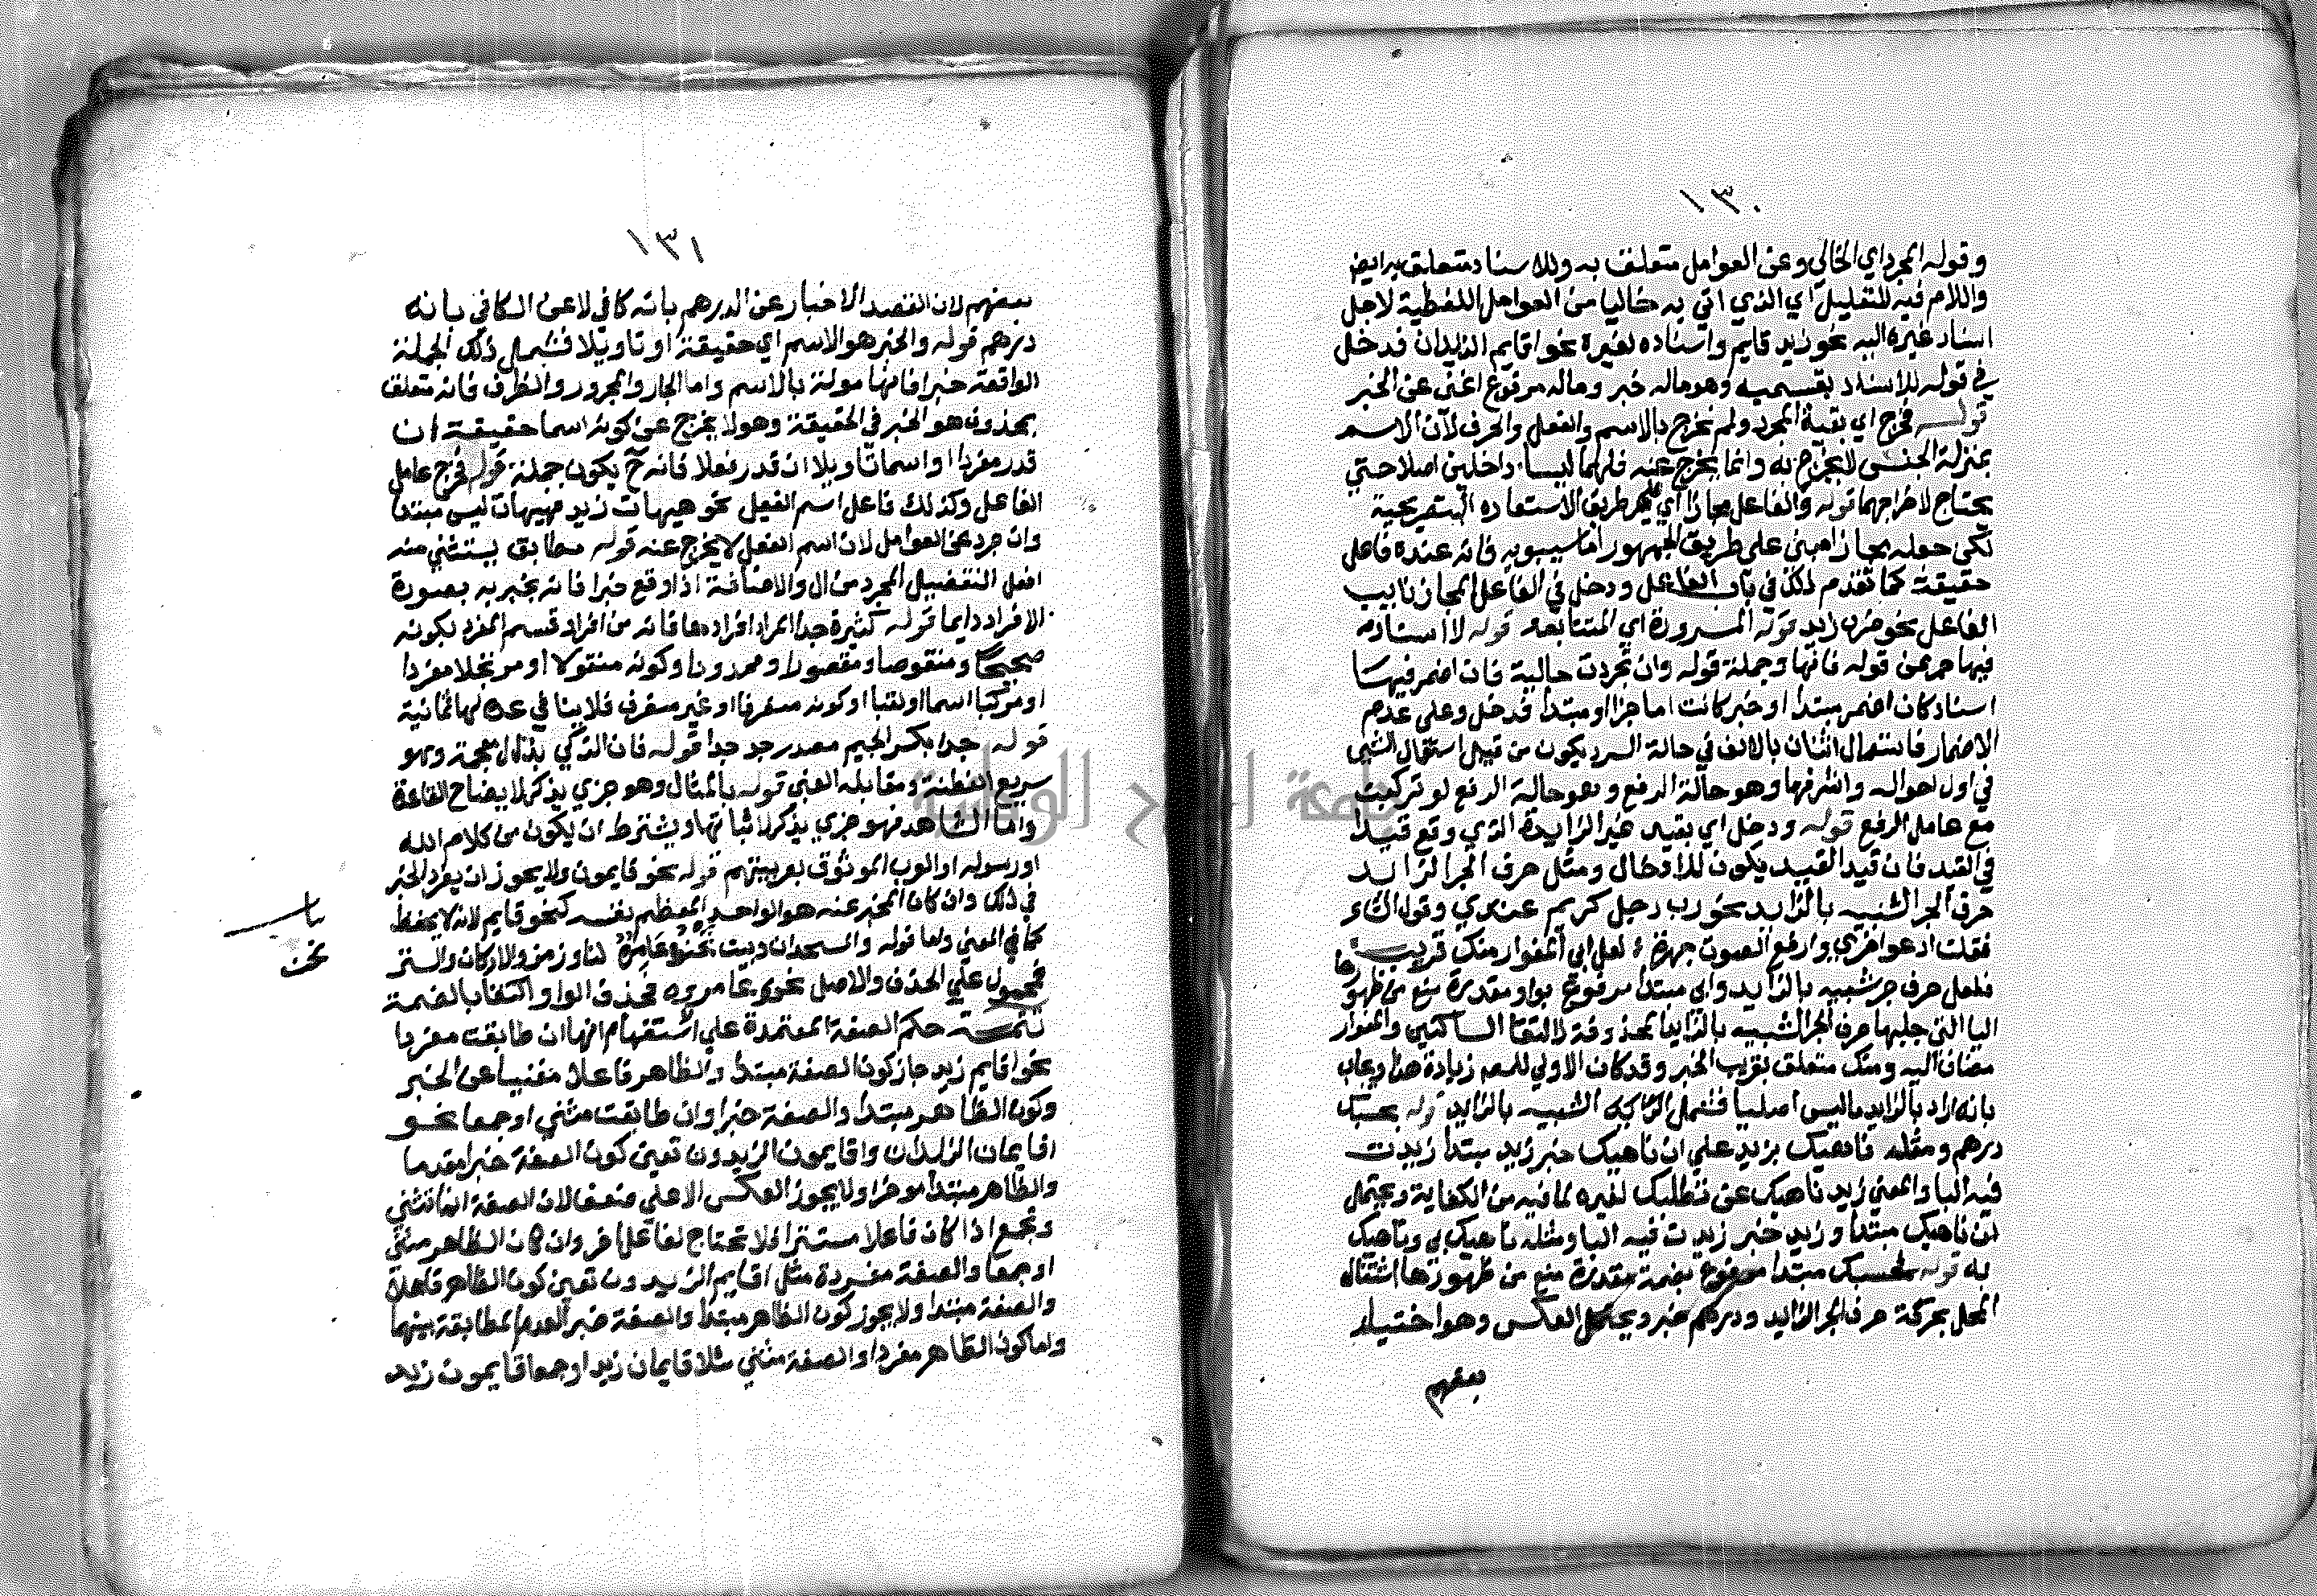 ١٣٠
وقوله المجرد اي الخالي وعن العوامل متعلق به وللاسناد متعلق به ايض
واللام فيه للتعليل اي الذي اتي به خاليا من العوامل اللفظية لاجل
اسناد غيره اليه نحو زيد قايم واسناده لغيره نحو اقايم الزيدان فدخل
في قوله للاسناد بقسميه وهو ماله خبر وماله مرفوع اغنى عن الخبر
قوله فخرج اي بقية المجرد ولم نخرج بالاسم والفعل والحرف لان الاسم
بمنزلة الجنس لا يخرج به وانما يخرج عنه فلهما ليسا داخلين اصلا حتي
يحتاج لاخراجهما قوله والفاعل مجازا اي علي طريق الاستعارة التصريحية
لكن جعله مجازا مبني على طريق الجمهور اما سيبويه فانه عنده فاعل
حقيقة كما تقدم ذلك في باب الفاعل ودخل في الفاعل المجاز نايب
الفاعل نحو ضرب زيد قوله المسرودة اي المتتابعة قوله لا اسناد
فيها خرج عن قوله فانها وجملة قوله وان تجردت حالية فان اضمر فيها
اسناد كان اضمر مبتدا او خبر كانت اما جزا او مبتدا فدخل وعلى عدم
الاضمار فاستعمال اثنان بالالف في حالة السرد يكون من قبيل استعمال الشي
في اول احواله واشرفها وهو حالة الرفع وهو حالة الرفع لو تركبت
مع عامل الرفع قوله ودخل اي بقيد غير الزايدة الذي وقع قيدا
في القيد فان قيد القيد يكون للادخال ومثل حرف الجر الزايد
حرف الجر الشبيه بالزايد نحو رب رجل كريم عندي وقول الشاعر
فقلت ادعو اخري وارفع الصوت جهرة لعل ابي المغوار منك قريب
فلعل حرف جر شبيه بالزايد وابي مبتدا مرفوع بواو مقدرة منع من ظهورها
اليا التي جلبها حرف الجر الشبيه بالزايد المحذوفة لالتقا الساكنين والمغوار
مضاف اليه ومنك متعلق بقريب الخبر وقد كان الاولي للمص زيادة هذا ويجاب
بانه اراد بالزايد ما ليس اصليا فتشمل الزايد الشبيه بالزايد قوله بحسبك
درهم ومثله ناهيك بزيد علي ان ناهيك خبر زيد مبتدا زيدت
فيه البا والمعني زيد ناهيك عن تطلبك لغيره لما فيه من الكفاية ويحتمل
ان ناهيك مبتدا وزيد خبر زيدت فيه البا ومثله ناهيك بي وناهيك
به قوله فحسبك مبتدا مرفوع بضمة مقدرة منع من ظهورها اشتغال
المحل بحركة حرف الجر الزايد ودرهم خبر ويحتمل العكس وهو اختيار
بعضهم
١٣١
بعضهم لان القصد الاخبار عن الدرهم بانه كافي لا عن الكافي بانه
درهم قوله والخبر هو الاسم اي حقيقة او تاويلا فشمل ذلك الجملة
الواقعة خبرا فانها مولة بالاسم واما الجار والمجرور والظرف فانه متعلق
بمحذوف هو الخبر في الحقيقة وهو لا يخرج عن كونه اسما حقيقة ان
قدر مفردا او اسما تاويلا ان قدر فعلا فانه ح يكون جملة قوله فخرج عامل
الفاعل وكذلك فاعل اسم الفعل نحو هيهات زيد فهيهات ليس مبتدا
وان جرد عن العوامل لان اسم الفعل لا يخرج عنه قوله مطابق يستثني منه
افعل التفضيل المجرد من ال والاضافة اذا وقع خبرا فانه يخبر به بصورة
الافراد دايما قوله كثيرة جدا المراد افرادها فانه من افراد قسم المفرد بكونه
صحيحا ومنقوصا ومقصورا وممدودا وكونه منقولا او مرتجلا مفردا
او مركبا اسما او لقبا او كونه منصرفا او غير منصرف فلا ينافي عده لها ثمانية
قوله جدا بكسر الجيم مصدر جد جدا قوله فان الذكي بذال معجمة وهو
سريع الفطنة ومقابله الغبي قوله بالمثال وهو جزي يذكر لايضاح القاعدة
واما الشاهد فهو جزي يذكر لاثباتها ويشترط ان يكون من كلام الله
او رسوله او العرب الموثوق بعربيتهم قوله نحو قايمون ولا يجوز ان يفرد الخبر
في ذلك وان كان المخبر عنه هو الواحد المعظم نفسه كنحو قايم لانه لا يحفظ
كما في المغني واما قوله والمسجدان وبيت نحن عامره لنا وزمزم والاركان والستر
فمحمول علي الحذف والاصل نحن عامروه فحذف الواو اكتفا بالضمة
تتمة حكم الصفة المعتمدة علي استفهام انها ان طابقت مفردا
نحو اقايم زيد جاز كون الصفة مبتدا والظاهر فاعلا مغنيا عن الخبر
وكون الظاهر مبتدا والصفة خبرا وان طابقت مثني او جمعا نحو
اقايمان الزيدان واقايمون الزيدون تعين كون الصفة خبرا مقدما
والظاهر مبتدا موخرا ولا يجوز العكس الا علي ضعف لان الصفة انما تثني
وتجمع اذا كان فاعلا مستترا فلا تحتاج لفاعل اخر وان كان الظاهر مثني
او جمعا والصفة مفردة مثل اقايم الزيدون تعين كون الظاهر فاعلا
والصفة مبتدا ولا يجوز كون الظاهر مبتدا والصفة خبر العدم المطابقة بينهما
واما كون الظاهر مفردا والصفة مثني مثلا قايمان زيد او جمعا قايمون زيد